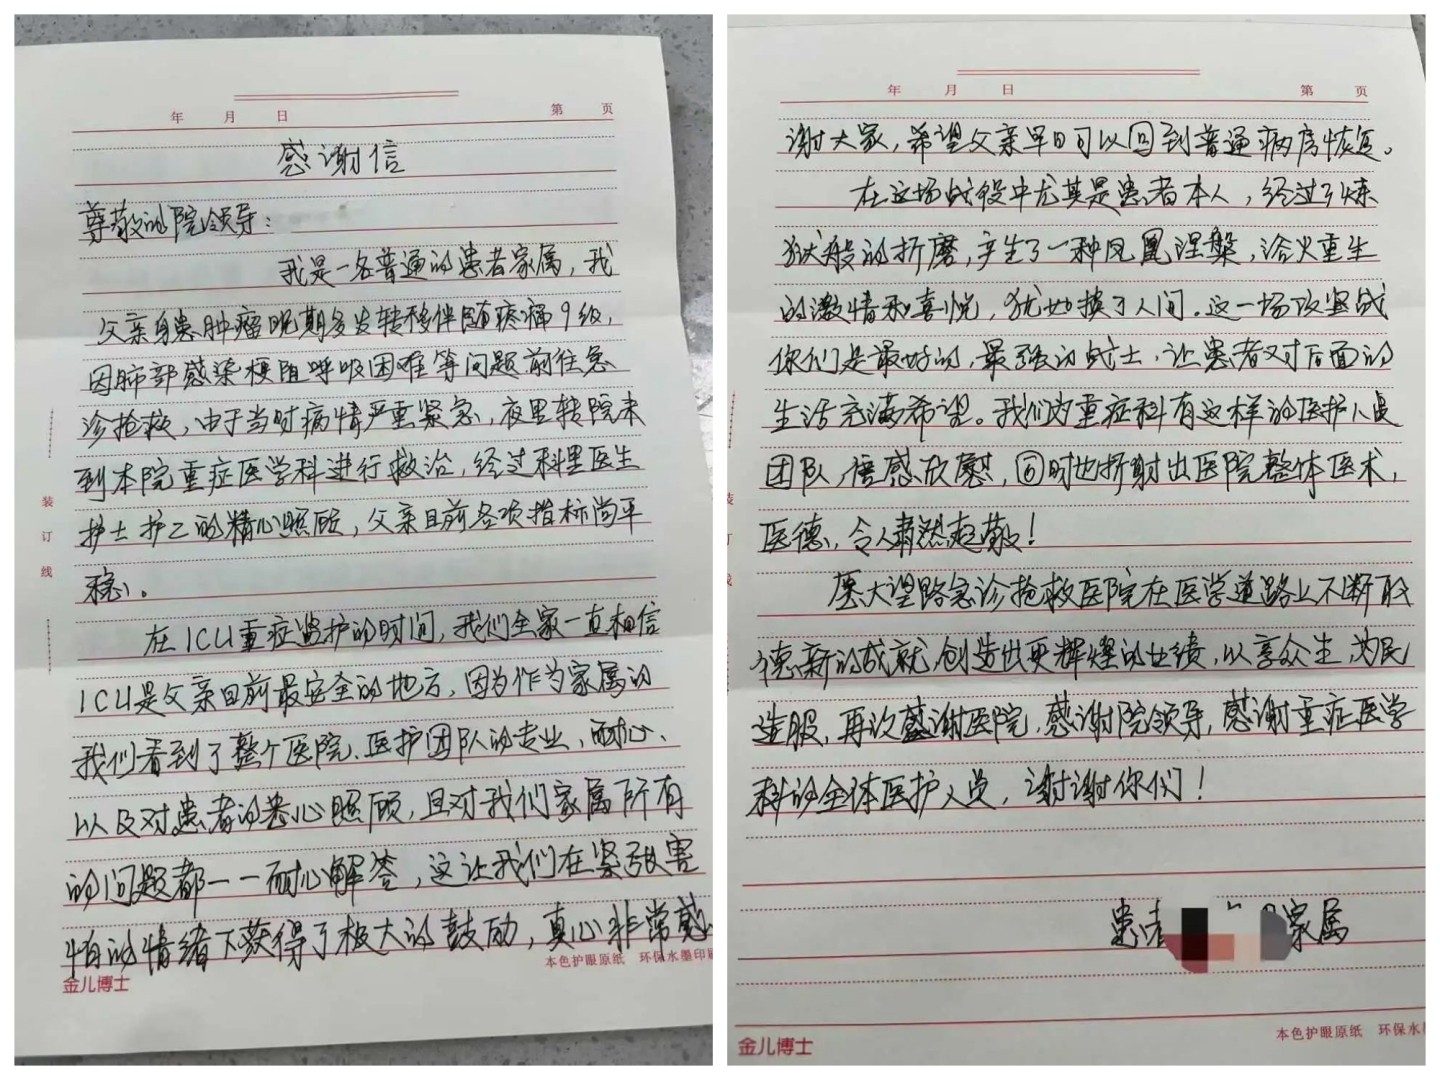 年 月 日 第 页
感谢信
尊敬的院领导:
我是一名普通的患者家属,我
父亲身患肿瘤晚期多发转移伴随疼痛9级,
因肺部感染梗阻呼吸困难等问题前往急
诊抢救,由于当时病情严重紧急,夜里转院来
到本院重症医学科进行救治,经过科里医生
护士护工的精心照顾,父亲目前各项指标尚平
稳。
在ICU重症监护的时间,我们全家一直相信
ICU是父亲目前最安全的地方,因为作为家属的
我们看到了整个医院、医护团队的专业、耐心、
以及对患者的悉心照顾,且对我们家属所有
的问题都一一耐心解答,这让我们在紧张害
怕的情绪下获得了极大的鼓励,真心非常感
装
订
线
本色护眼原纸 环保水墨印刷
金儿博士
年 月 日 第 页
谢大家,希望父亲早日可以回到普通病房恢复。
在这场战役中尤其是患者本人,经过了炼
狱般的折磨,产生了一种凤凰涅槃,浴火重生
的激情和喜悦,犹如换了人间。这一场攻坚战
你们是最好的,最强的战士,让患者对后面的
生活充满希望。我们为重症科有这样的医护人员
团队,倍感欣慰,同时也折射出医院整体医术,
医德,令人肃然起敬!
愿大望路急诊抢救医院在医学道路上不断取
德新的成就,创造出更辉煌的业绩,以享众生,为民
造服,再次感谢医院,感谢院领导,感谢重症医学
科的全体医护人员,谢谢你们!
患者 家属
装
订
线
本色护眼原纸 环保水
金儿博士